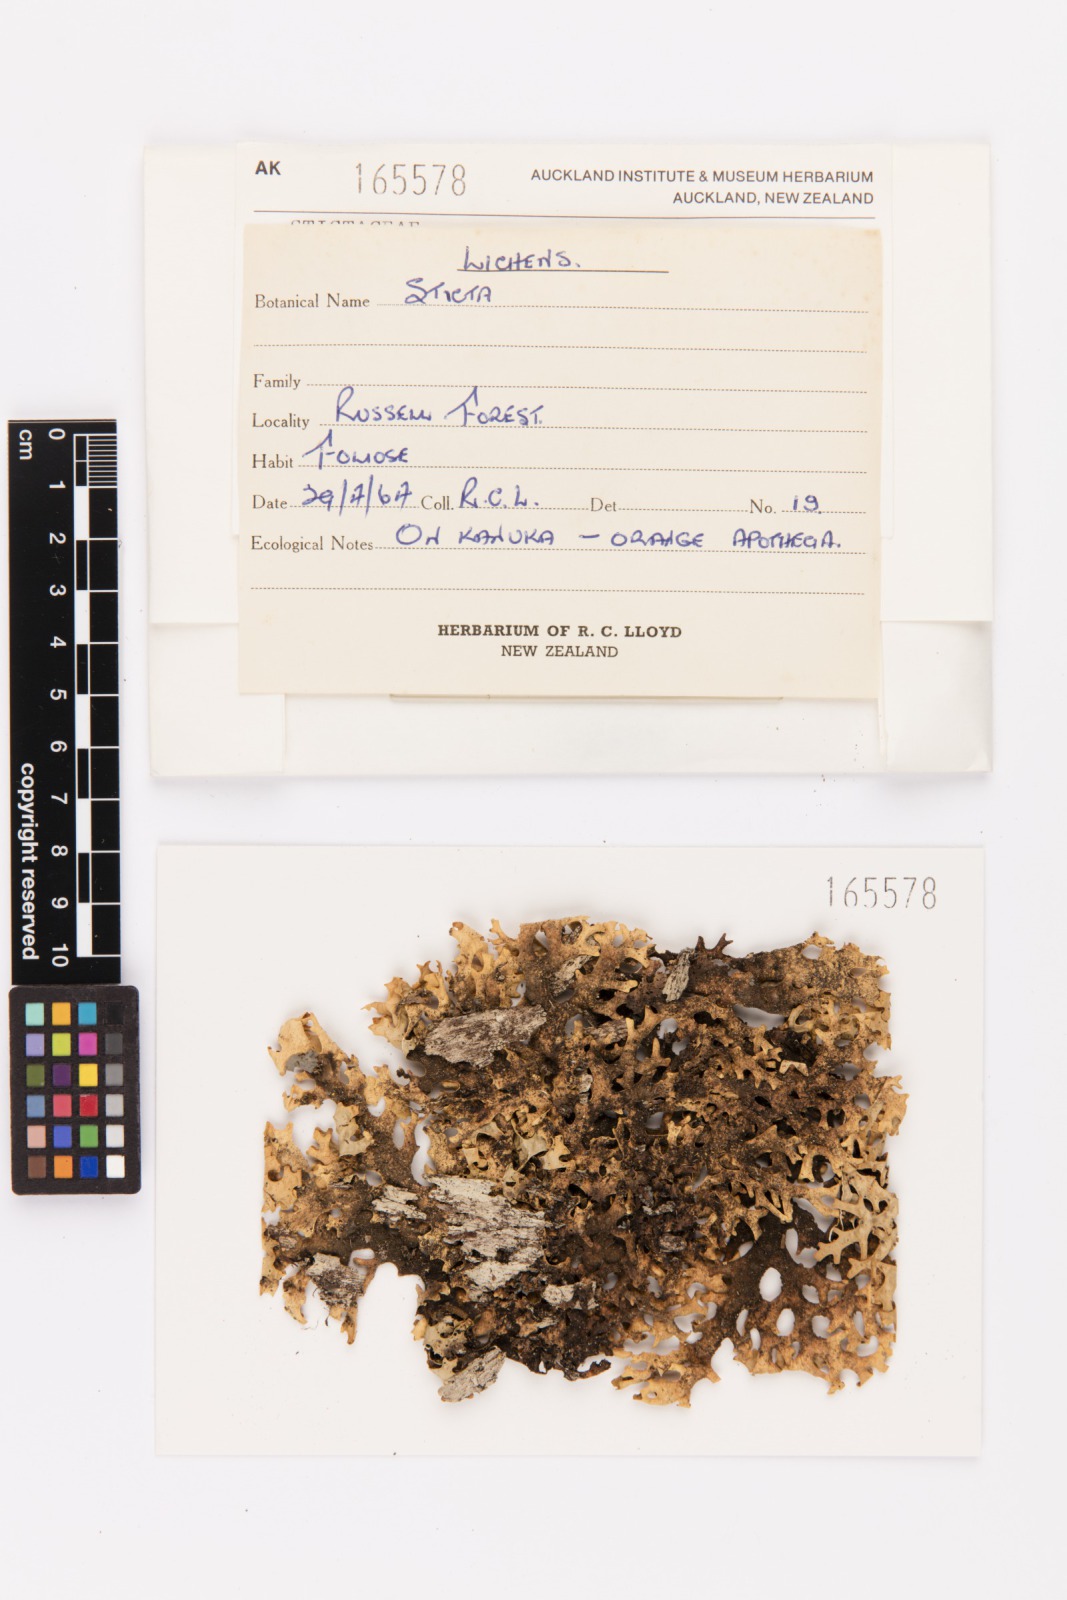 AK 165578 AUCKLAND INSTITUTE & MUSEUM HERBARIUM
AUCKLAND, NEW ZEALAND
STICTACEAE
LICHENS.
Botanical Name STICTA
Family
Locality RUSSELL FOREST.
Habit FOLIOSE
Date 29/7/67 Coll. R.C.L. Det No. 19.
Ecological Notes ON KANUKA - ORANGE APOTHECIA.
HERBARIUM OF R. C. LLOYD
NEW ZEALAND
cm 0 1 2 3 4 5 6 7 8 9 10
copyright reserved
165578